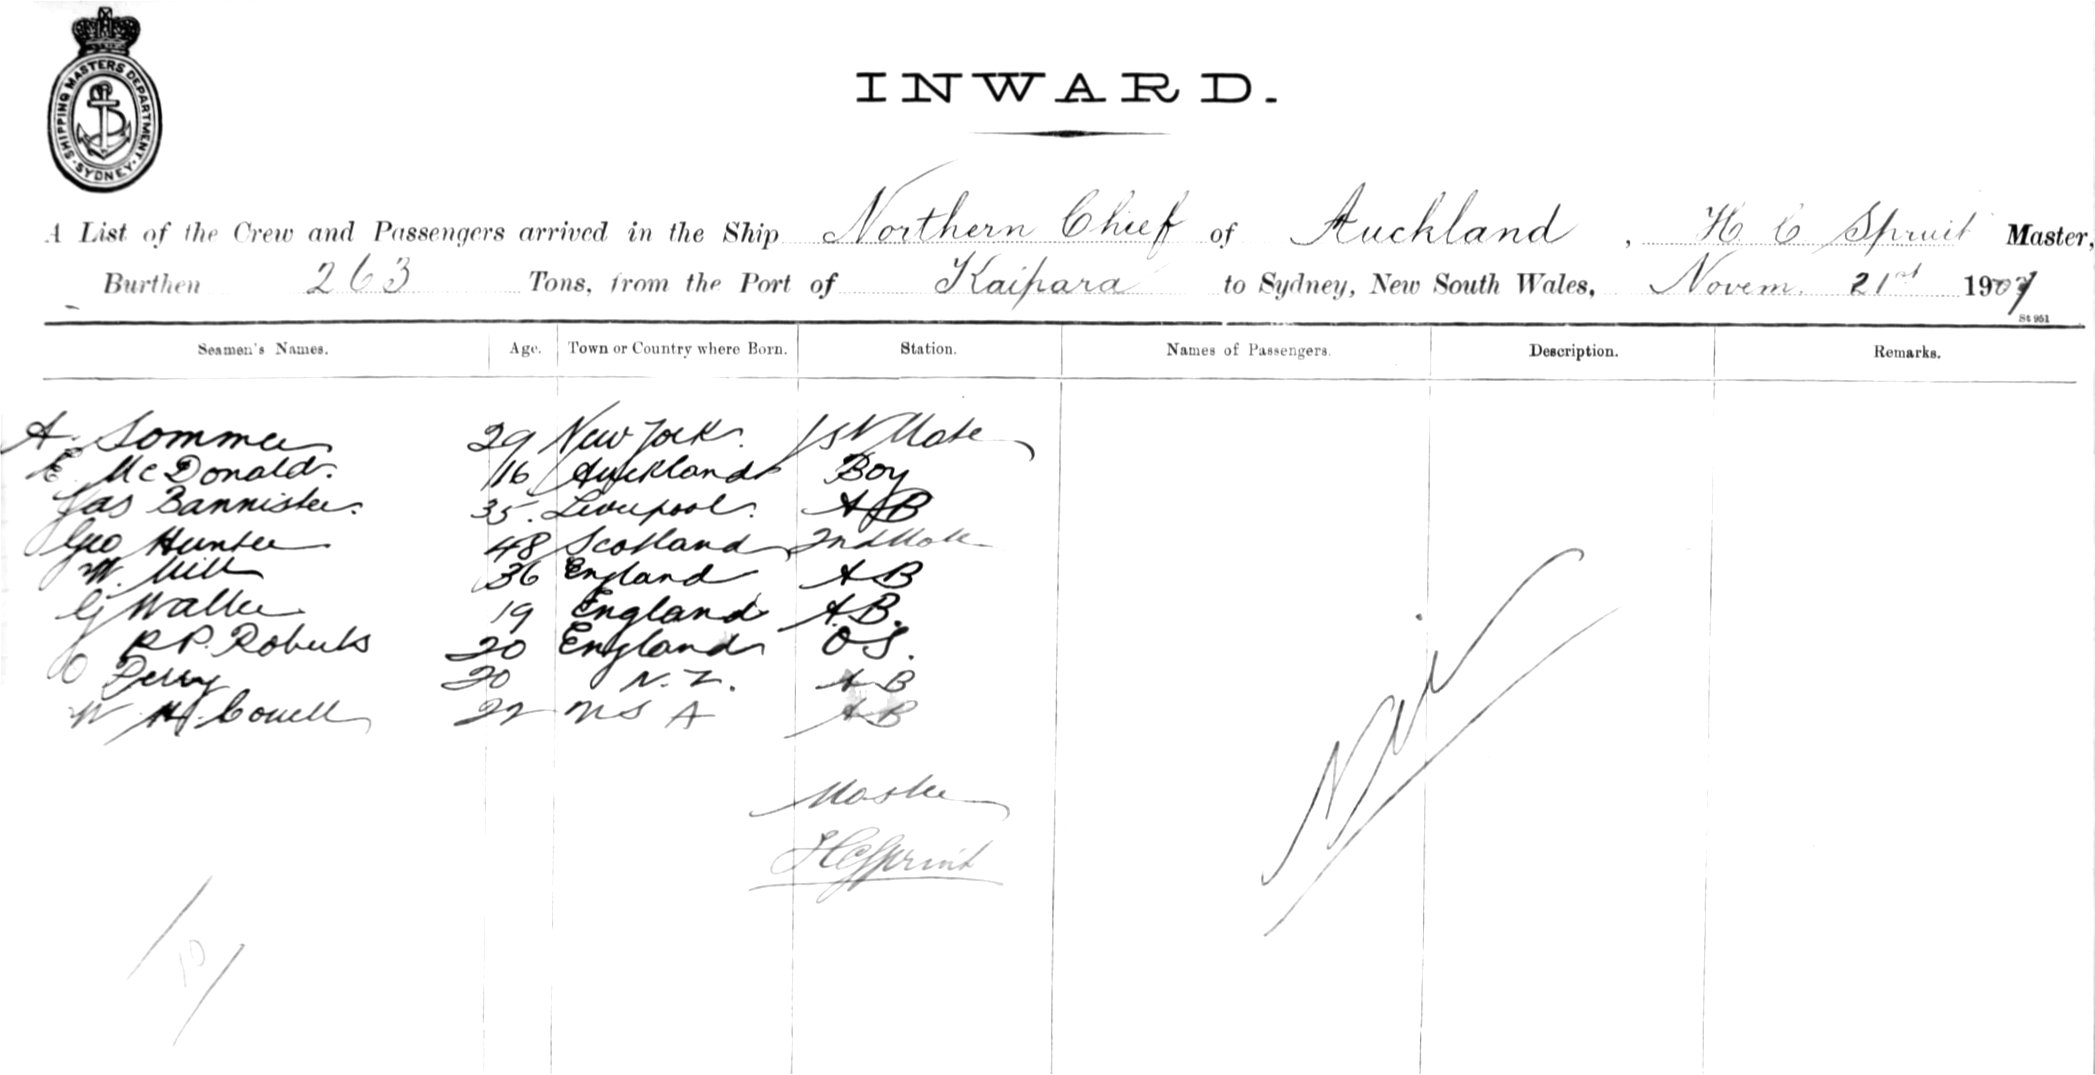 SHIPPING MASTERS DEPARTMENT · SYDNEY ·
INWARD.
A List of the Crew and Passengers arrived in the Ship Northern Chief of Auckland, H C Spruit Master,
Burthen 263 Tons, from the Port of Kaipara to Sydney, New South Wales, Novem. 21st 1907
St 951
Seamen's Names. Age. Town or Country where Born. Station. Names of Passengers. Description. Remarks.
A. Sommer 29 New York. 1st Mate
E McDonald. 16 Auckland Boy
Jas Bannister. 35. Liverpool. AB
Geo Hunter 48 Scotland 2nd Mate
W. 36 England AB
G Walker 19 England A.B.
R P. Roberts 20 England OS.
Perry 20 N. Z. AB
W H. 22 AB
Nil
Master
H C Spruit
10